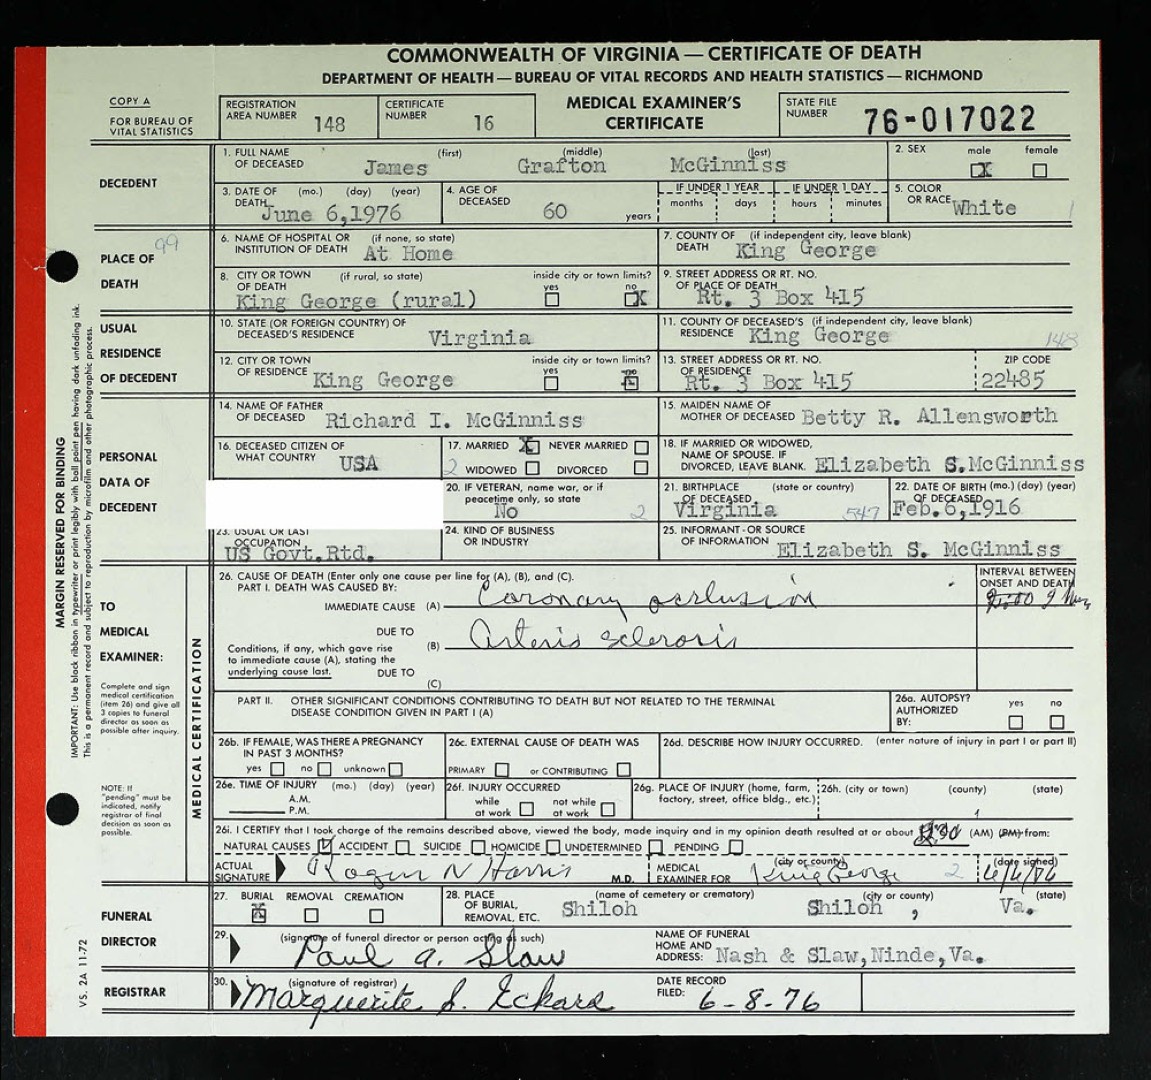 COMMONWEALTH OF VIRGINIA — CERTIFICATE OF DEATH
DEPARTMENT OF HEALTH — BUREAU OF VITAL RECORDS AND HEALTH STATISTICS — RICHMOND
COPY A
FOR BUREAU OF VITAL STATISTICS
REGISTRATION AREA NUMBER 148
CERTIFICATE NUMBER 16
MEDICAL EXAMINER'S CERTIFICATE
STATE FILE NUMBER 76-017022
DECEDENT
1. FULL NAME OF DECEASED (first) (middle) (last)
James Grafton McGinniss
2. SEX male X female
3. DATE OF DEATH (mo.) (day) (year)
June 6,1976
4. AGE OF DECEASED 60 years
IF UNDER 1 YEAR months days
IF UNDER 1 DAY hours minutes
5. COLOR OR RACE White 1
99
PLACE OF DEATH
6. NAME OF HOSPITAL OR INSTITUTION OF DEATH (if none, so state)
At Home
7. COUNTY OF DEATH (if independent city, leave blank)
King George
8. CITY OR TOWN OF DEATH (if rural, so state) inside city or town limits? yes no X
King George (rural)
9. STREET ADDRESS OR RT. NO. OF PLACE OF DEATH
Rt. 3 Box 415
USUAL RESIDENCE OF DECEDENT
10. STATE (OR FOREIGN COUNTRY) OF DECEASED'S RESIDENCE
Virginia
11. COUNTY OF DECEASED'S RESIDENCE (if independent city, leave blank)
King George
12. CITY OR TOWN OF RESIDENCE inside city or town limits? yes no
King George
13. STREET ADDRESS OR RT. NO. OF RESIDENCE
Rt. 3 Box 415
ZIP CODE
22485
PERSONAL DATA OF DECEDENT
14. NAME OF FATHER OF DECEASED Richard I. McGinniss
15. MAIDEN NAME OF MOTHER OF DECEASED Betty R. Allensworth
16. DECEASED CITIZEN OF WHAT COUNTRY USA
17. MARRIED X NEVER MARRIED
2 WIDOWED DIVORCED
18. IF MARRIED OR WIDOWED, NAME OF SPOUSE. IF DIVORCED, LEAVE BLANK. Elizabeth S.McGinniss
20. IF VETERAN, name war, or if peacetime only, so state
No 2
21. BIRTHPLACE OF DECEASED (state or country)
Virginia 547
22. DATE OF BIRTH OF DECEASED (mo.) (day) (year)
Feb.6,1916
23. USUAL OR LAST OCCUPATION
US Govt.Rtd.
24. KIND OF BUSINESS OR INDUSTRY
25. INFORMANT OR SOURCE OF INFORMATION
Elizabeth S. McGinniss
MARGIN RESERVED FOR BINDING
IMPORTANT: Use black ribbon in typewriter or print legibly with ball point pen having dark unfading ink.
This is a permanent record and subject to reproduction by microfilm and other photographic process.
TO MEDICAL EXAMINER:
Complete and sign medical certification (item 26) and give all 3 copies to funeral director as soon as possible after inquiry.
NOTE: If "pending" must be indicated, notify registrar of final decision as soon as possible.
MEDICAL CERTIFICATION
26. CAUSE OF DEATH (Enter only one cause per line for (A), (B), and (C).
PART I. DEATH WAS CAUSED BY:
IMMEDIATE CAUSE (A) Coronary occlusion
INTERVAL BETWEEN ONSET AND DEATH
DUE TO
(B) Arterio sclerosis
Conditions, if any, which gave rise to immediate cause (A), stating the underlying cause last.
DUE TO
(C)
PART II. OTHER SIGNIFICANT CONDITIONS CONTRIBUTING TO DEATH BUT NOT RELATED TO THE TERMINAL DISEASE CONDITION GIVEN IN PART I (A)
26a. AUTOPSY? AUTHORIZED BY: yes no
26b. IF FEMALE, WAS THERE A PREGNANCY IN PAST 3 MONTHS?
yes no unknown
26c. EXTERNAL CAUSE OF DEATH WAS
PRIMARY or CONTRIBUTING
26d. DESCRIBE HOW INJURY OCCURRED. (enter nature of injury in part I or part II)
26e. TIME OF INJURY (mo.) (day) (year)
A.M.
P.M.
26f. INJURY OCCURRED
while at work not while at work
26g. PLACE OF INJURY (home, farm, factory, street, office bldg., etc.)
26h. (city or town) (county) (state)
26i. I CERTIFY that I took charge of the remains described above, viewed the body, made inquiry and in my opinion death resulted at or about (AM) (PM) from:
NATURAL CAUSES ACCIDENT SUICIDE HOMICIDE UNDETERMINED PENDING
ACTUAL SIGNATURE Roger N Harris M.D.
MEDICAL EXAMINER FOR (city or county) King George 2
(date signed) 6/6/76
FUNERAL DIRECTOR
27. BURIAL REMOVAL CREMATION
28. PLACE OF BURIAL, REMOVAL, ETC. (name of cemetery or crematory) (city or county) (state)
Shiloh Shiloh , Va.
29. (signature of funeral director or person acting as such)
Paul A. Slaw
NAME OF FUNERAL HOME AND ADDRESS: Nash & Slaw,Ninde,Va.
REGISTRAR
30. (signature of registrar)
Marguerite S. Eckard
DATE RECORD FILED: 6-8-76
VS. 2A 11-72